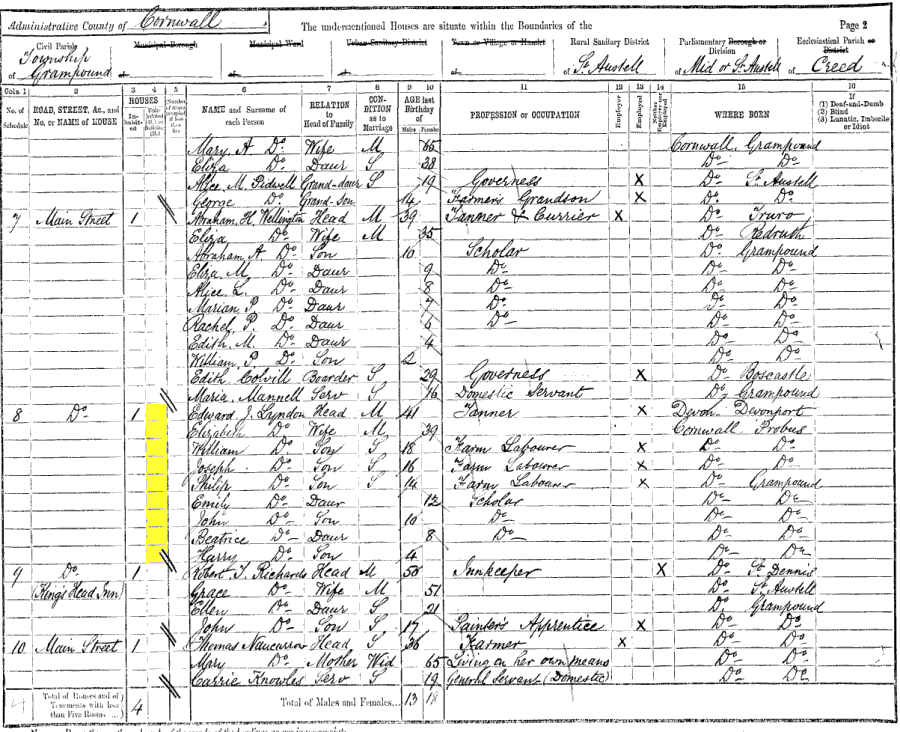 Administrative County of Cornwall
The undermentioned Houses are situate within the Boundaries of the
Page 2
Civil Parish
Municipal Borough
Municipal Ward
Urban Sanitary District
Town or Village or Hamlet
Rural Sanitary District
Parliamentary Borough or Division
Ecclesiastical Parish or District
Township of Grampound
of
of
of
of
of St. Austell
of Mid or St. Austell
of Creed
Cols. 1 2 3 4 5 6 7 8 9 10 11 12 13 14 15 16
No. of Schedule
ROAD, STREET, &c., and No. or NAME of HOUSE
HOUSES
Inhabited
NAME and Surname of each Person
RELATION to Head of Family
CONDITION as to Marriage
AGE last Birthday of
Males Females
PROFESSION or OCCUPATION
Employer
Employed
Neither Employer nor Employed
WHERE BORN
(1) Deaf-and-Dumb
(2) Blind
(3) Lunatic, Imbecile or Idiot
Mary A Do Wife M 65 Cornwall Grampound
Eliza Do Daur S 38 Do Do
Alice M. Pidwell Grand-daur S 19 Governess X Do St. Austell
George Do Grand-son 14 Farmers Grandson X Do Do
7 Main Street 1 Abraham H. Wellington Head M 39 Tanner & Currier X Do Truro
Eliza Do Wife M 35 Do Redruth
Abraham A Do Son 10 Scholar Do Grampound
Eliza M. Do Daur 9 Do Do Do
Alice L. Do Daur 8 Do Do Do
Marian P. Do Daur 7 Do Do Do
Rachel P. Do Daur 6 Do Do Do
Edith M. Do Daur 4 Do Do
William P. Do Son 2 Do Do
Edith Colvill Boarder S 29 Governess X Do Boscastle
Maria Mannell Serv S 16 Domestic Servant Do Grampound
8 Do 1 Edward J. Lyndon Head M 41 Tanner X Devon Devonport
Elizabeth Do Wife M 39 Cornwall Probus
William Do Son S 18 Farm Labourer X Do Do
Joseph Do Son S 16 Farm Labourer X Do Do
Philip Do Son S 14 Farm Labourer X Do Grampound
Emily Do Daur 12 Scholar Do Do
John Do Son 10 Do Do Do
Beatrice Do Daur 8 Do Do Do
Harry Do Son 4 Do Do
9 Do 1 Robert T. Richards Head M 58 Innkeeper X Do St. Dennis
Kings Head Inn Grace Do Wife M 51 Do St. Austell
Ellen Do Daur S 21 Do Grampound
John Do Son S 17 Painter's Apprentice X Do Do
10 Main Street 1 Thomas Nancarrow Head S 36 Farmer X Do Do
Mary Do Mother Wid 65 Living on her own means Do Do
Carrie Knowles Serv S 19 General Servant (Domestic) Do Do
4 Total of Houses and of Tenements with less than Five Rooms 4
Total of Males and Females... 13 18